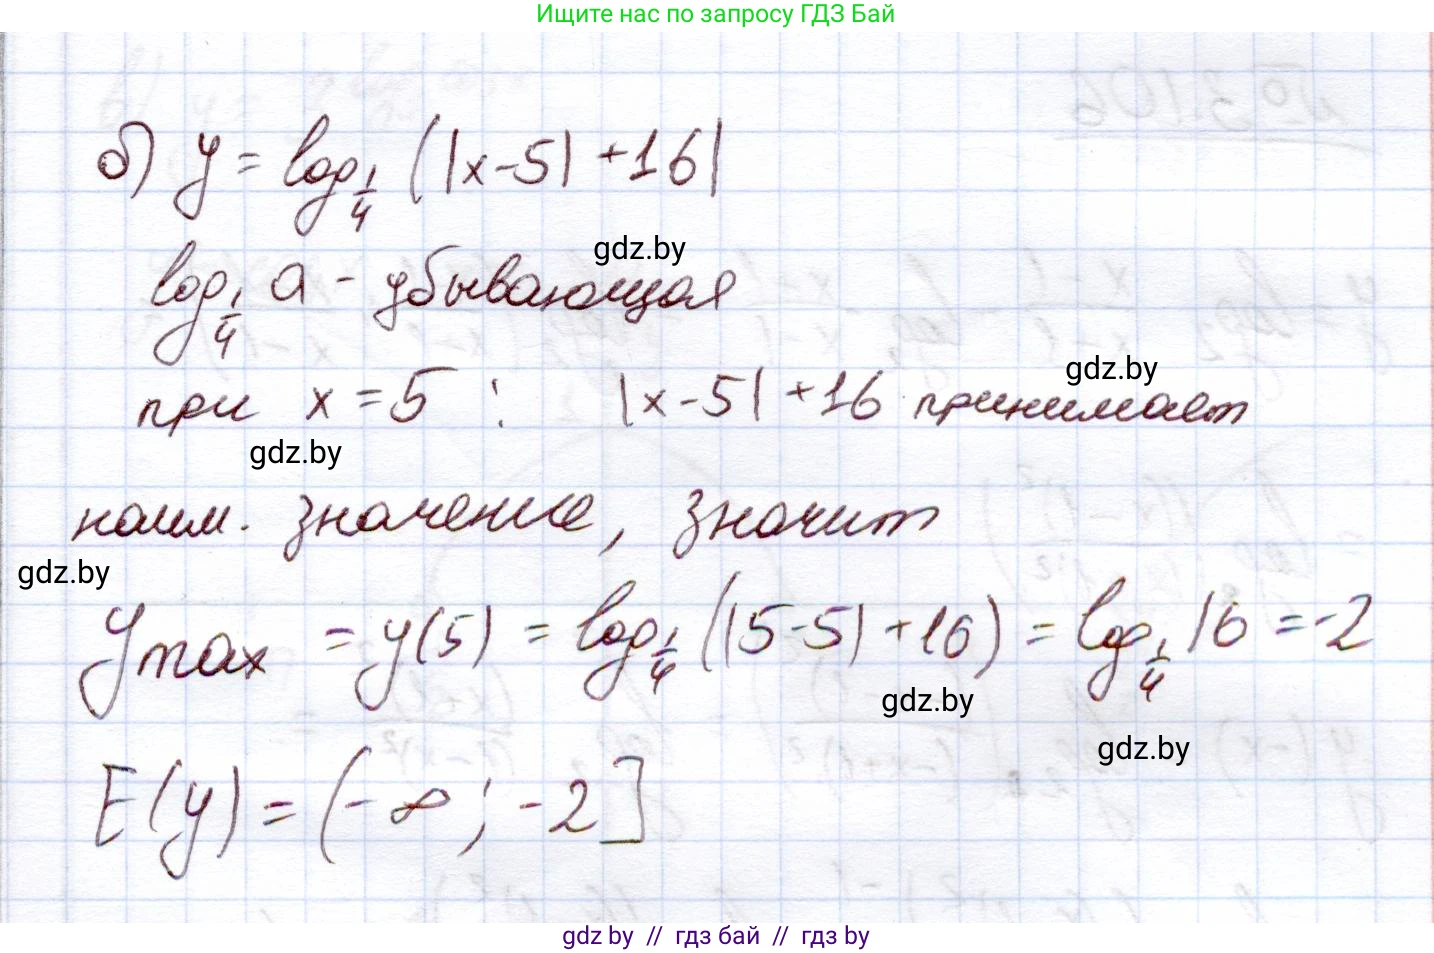 Ищите нас по запросу ГДЗ Бай
б) y = log 1/4 (|x-5| +16|
gdz.by
log 1/4 a - убывающая
gdz.by
при x = 5 : |x-5| +16 принимает
gdz.by
наим. значение, значит
gdz.by
y max = y(5) = log 1/4 (|5-5| +16) = log 1/4 16 = -2
gdz.by
gdz.by
E(y) = (-∞; -2]
gdz by // гдз бай // гдз by